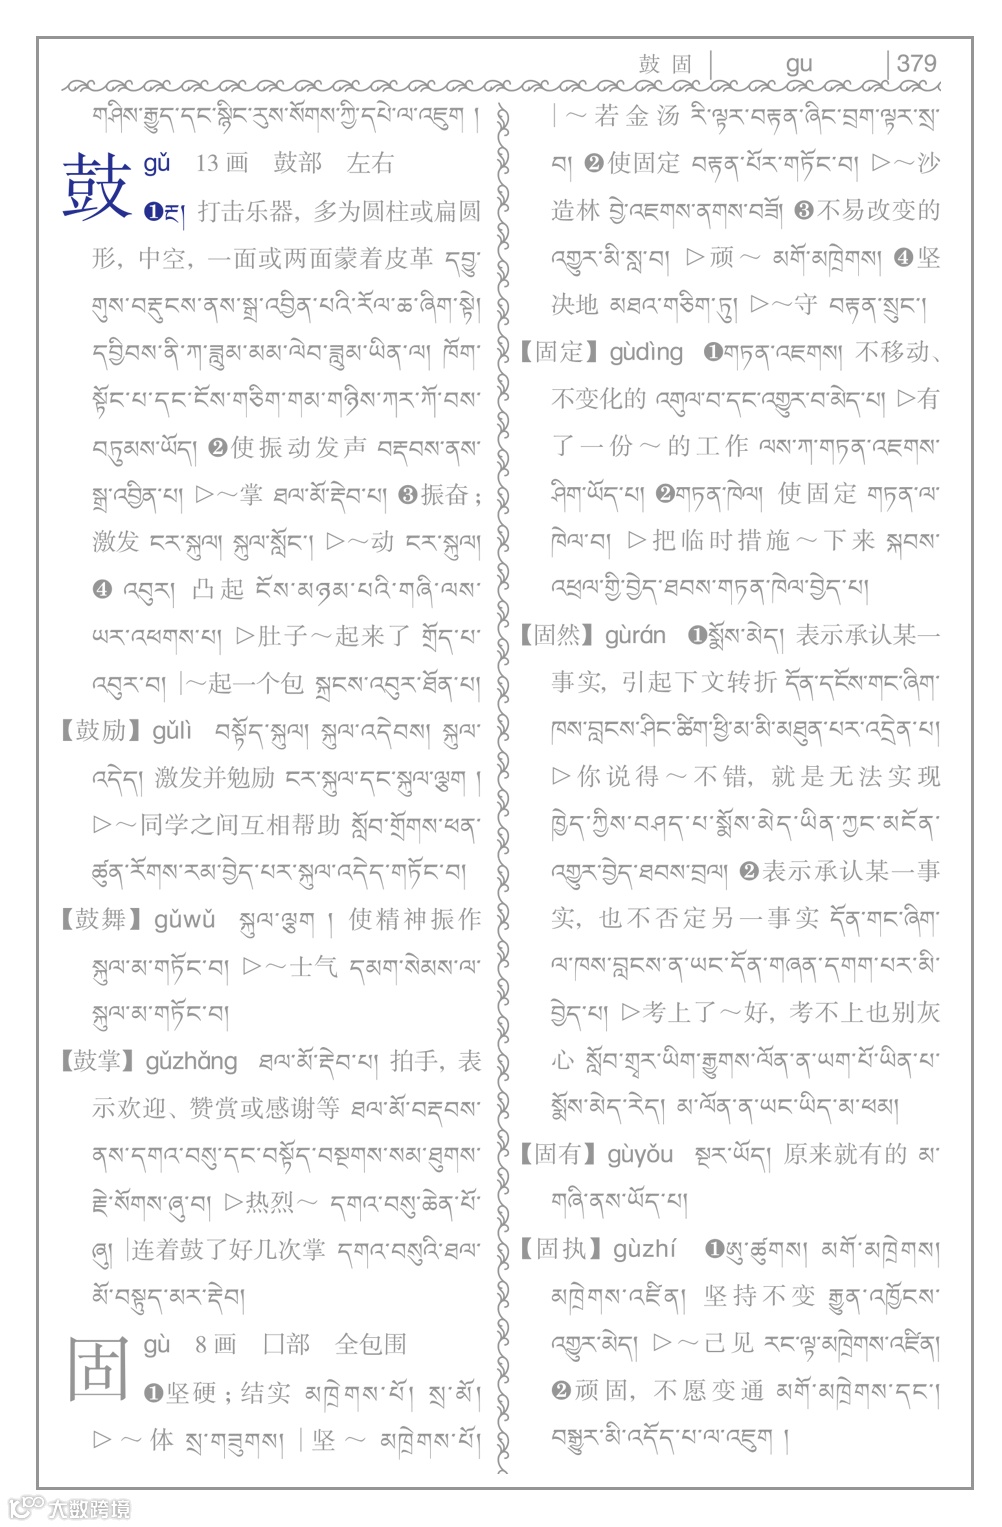 鼓 固 | gu | 379
གཤིས་རྒྱུད་དང་སྙིང་རུས་སོགས་ཀྱི་དཔེ་ལ་འཇུག །
鼓 gǔ 13 画 鼓部 左右
❶རྔ། 打击乐器，多为圆柱或扁圆
形，中空，一面或两面蒙着皮革 དབྱུ་
གུས་བརྡུངས་ནས་སྒྲ་འབྱིན་པའི་རོལ་ཆ་ཞིག་སྟེ།
དབྱིབས་ནི་ཀ་ཟླུམ་མམ་ལེབ་ཟླུམ་ཡིན་ལ། ཁོག་
སྟོང་པ་དང་ངོས་གཅིག་གམ་གཉིས་ཀར་ཀོ་བས་
བཏུམས་ཡོད། ❷使振动发声 བརྡབས་ནས་
སྒྲ་འབྱིན་པ། ▷～掌 ཐལ་མོ་རྡེབ་པ། ❸振奋；
激发 ངར་སྐུལ། སྐུལ་སློང་། ▷～动 ངར་སྐུལ།
❹ འབུར། 凸起 ངོས་མཉམ་པའི་གཞི་ལས་
ཡར་འཕགས་པ། ▷肚子～起来了 གྲོད་པ་
འབུར་བ། |～起一个包 སྐྲངས་འབུར་ཐོན་པ།
【鼓励】gǔlì བསྟོད་སྐུལ། སྐུལ་འདེབས། སྐུལ་
འདེད། 激发并勉励 ངར་སྐུལ་དང་སྐུལ་ལྕག །
▷～同学之间互相帮助 སློབ་གྲོགས་ཕན་
ཚུན་རོགས་རམ་བྱེད་པར་སྐུལ་འདེད་གཏོང་བ།
【鼓舞】gǔwǔ སྐུལ་ལྕག ། 使精神振作
སྐུལ་མ་གཏོང་བ། ▷～士气 དམག་སེམས་ལ་
སྐུལ་མ་གཏོང་བ།
【鼓掌】gǔzhǎng ཐལ་མོ་རྡེབ་པ། 拍手，表
示欢迎、赞赏或感谢等 ཐལ་མོ་བརྡབས་
ནས་དགའ་བསུ་དང་བསྟོད་བསྔགས་སམ་ཐུགས་
རྗེ་སོགས་ཞུ་བ། ▷热烈～ དགའ་བསུ་ཆེན་པོ་
ཞུ། |连着鼓了好几次掌 དགའ་བསུའི་ཐལ་
མོ་བསྟུད་མར་རྡེབ།
固 gù 8 画 囗部 全包围
❶坚硬；结实 མཁྲེགས་པོ། སྲ་མོ།
▷～体 སྲ་གཟུགས། |坚～ མཁྲེགས་པོ།
|～若金汤 རི་ལྟར་བརྟན་ཞིང་བྲག་ལྟར་སྲ་
བ། ❷使固定 བརྟན་པོར་གཏོང་བ། ▷～沙
造林 བྱེ་འཇགས་ནགས་བཟོ། ❸不易改变的
འགྱུར་མི་སླ་བ། ▷顽～ མགོ་མཁྲེགས། ❹坚
决地 མཐའ་གཅིག་ཏུ། ▷～守 བརྟན་སྲུང་།
【固定】gùdìng ❶གཏན་འཇགས། 不移动、
不变化的 འགུལ་བ་དང་འགྱུར་བ་མེད་པ། ▷有
了一份～的工作 ལས་ཀ་གཏན་འཇགས་
ཤིག་ཡོད་པ། ❷གཏན་ཁེལ། 使固定 གཏན་ལ་
ཁེལ་བ། ▷把临时措施～下来 སྐབས་
འཕྲལ་གྱི་བྱེད་ཐབས་གཏན་ཁེལ་བྱེད་པ།
【固然】gùrán ❶སྨོས་མེད། 表示承认某一
事实，引起下文转折 དོན་དངོས་གང་ཞིག་
ཁས་བླངས་ཤིང་ཚིག་ཕྱི་མ་མི་མཐུན་པར་འདྲེན་པ།
▷你说得～不错，就是无法实现
ཁྱེད་ཀྱིས་བཤད་པ་སྨོས་མེད་ཡིན་ཀྱང་མངོན་
འགྱུར་བྱེད་ཐབས་བྲལ། ❷表示承认某一事
实，也不否定另一事实 དོན་གང་ཞིག་
ལ་ཁས་བླངས་ན་ཡང་དོན་གཞན་དགག་པར་མི་
བྱེད་པ། ▷考上了～好，考不上也别灰
心 སློབ་གྲྭར་ཡིག་རྒྱུགས་ལོན་ན་ཡག་པོ་ཡིན་པ་
སྨོས་མེད་རེད། མ་ལོན་ན་ཡང་ཡིད་མ་ཕམ།
【固有】gùyǒu སྔར་ཡོད། 原来就有的 མ་
གཞི་ནས་ཡོད་པ།
【固执】gùzhí ❶ཨུ་ཚུགས། མགོ་མཁྲེགས།
མཁྲེགས་འཛིན། 坚持不变 རྒྱུན་འཁྱོངས་
འགྱུར་མེད། ▷～己见 རང་ལྟ་མཁྲེགས་འཛིན།
❷顽固，不愿变通 མགོ་མཁྲེགས་དང་།
བསྒྱུར་མི་འདོད་པ་ལ་འཇུག །
大数跨境